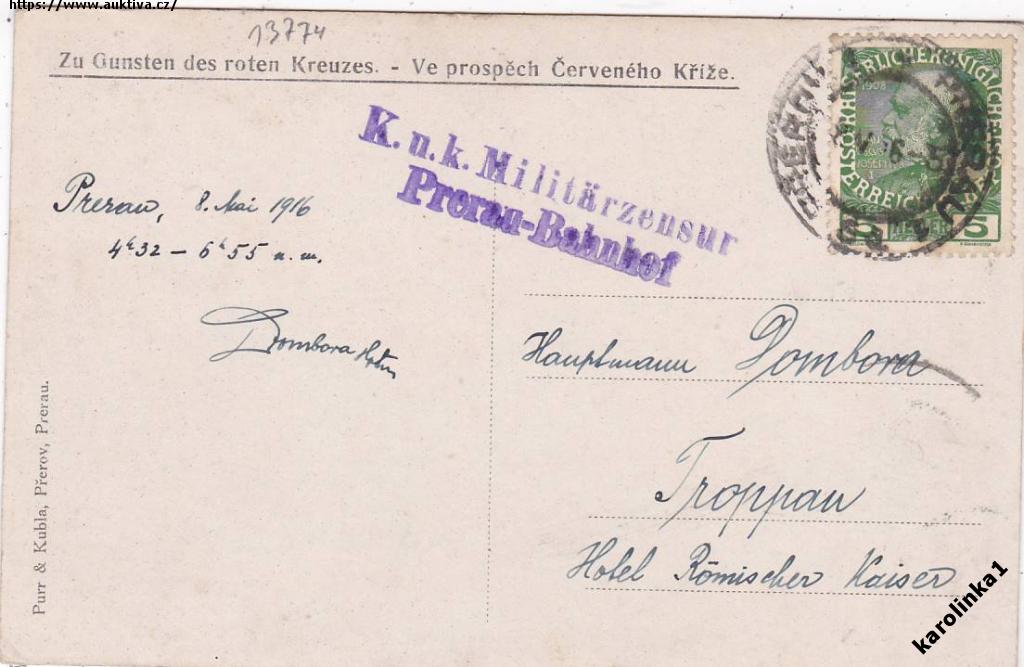 https://www.auktiva.cz/
13774
Zu Gunsten des roten Kreuzes. - Ve prospěch Červeného Kříže.
K. u. k. Militärzensur
Prerau-Bahnhof
Prerau, 8. Mai 1916
4h 32 - 6h 55 n. m.
Dombora Hptm
Purr & Kubla, Přerov, Prerau.
PRERAU
5 HELLER 5
1908
Hauptmann Dombora
Troppau
Hotel Römischer Kaiser
karolinka1